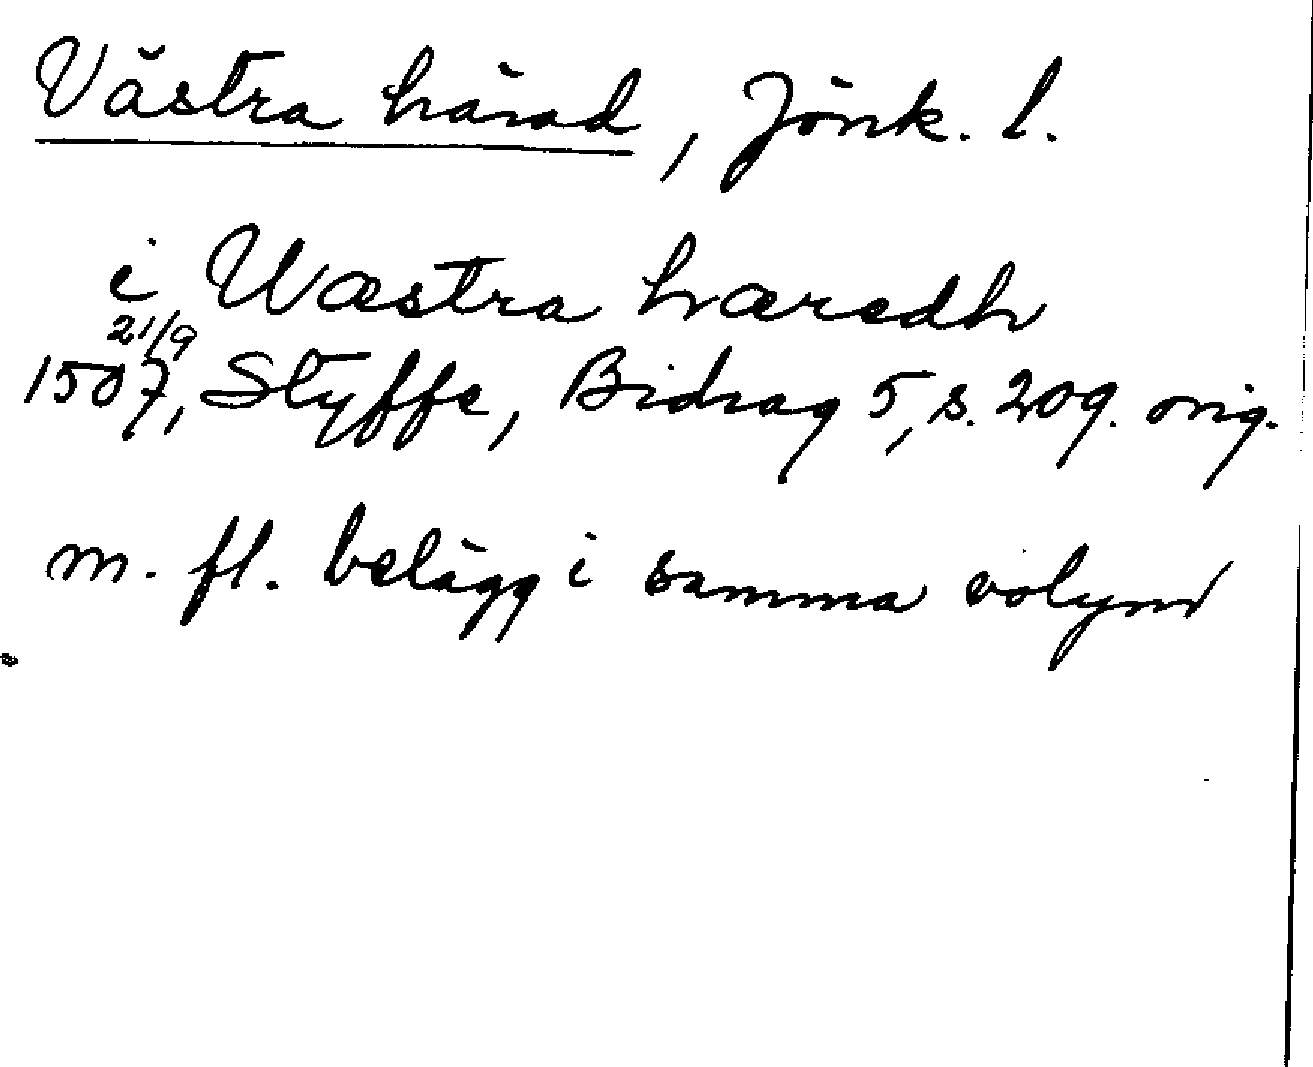 Västra härad, Jönk. l.
i Wæstra hæredh
21/9
1507, Styffe, Bidrag 5, s. 209. orig.
m. fl. belägg i samma volym